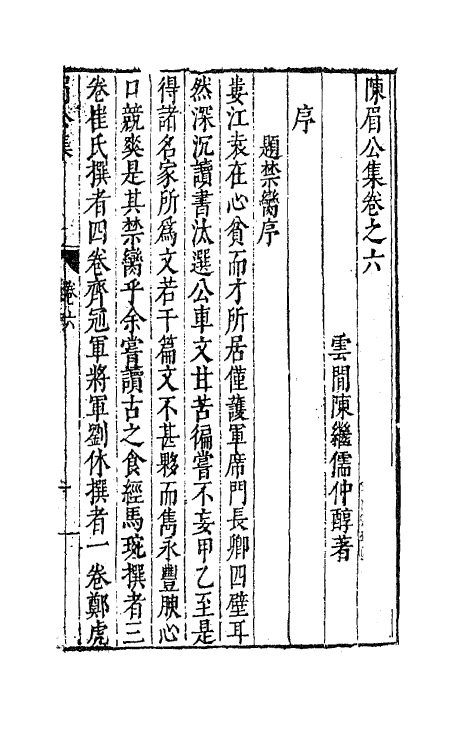 陳眉公集卷之六
雲間陳繼儒仲醇著
序
題禁臠序
婁江袁在心貧而才所居僅護軍席門長卿四壁耳
然深沉讀書汰選公車文甘苦徧嘗不妄甲乙至是
得諸名家所爲文若干篇文不甚夥而雋永豐腴心
口競爽是其禁臠乎余嘗讀古之食經馬琬撰者三
卷崔氏撰者四卷齊冠軍將軍劉休撰者一卷鄭虎
卷六